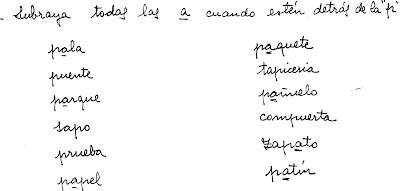 - Subraya todas las a cuando estén detrás de la "p"
pala paquete
puente tapiceria
parque pañuelo
sapo compuerta
prueba zapato
papel patín